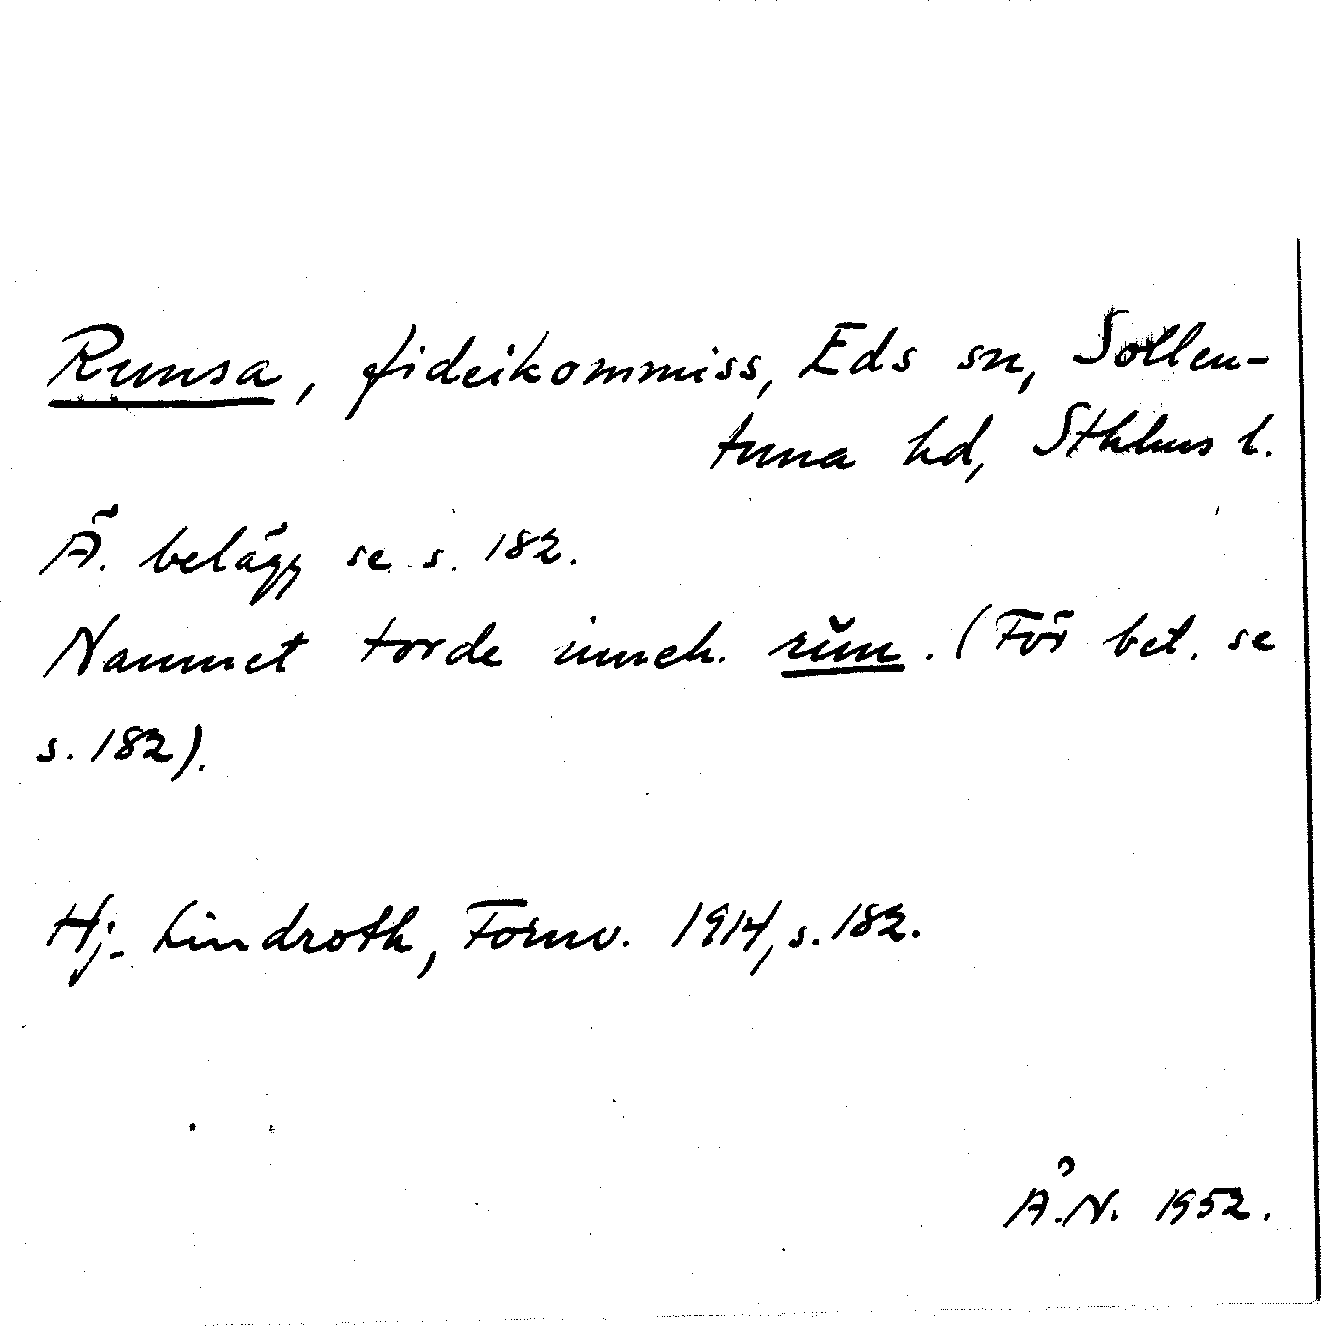 Runsa, fideikommiss, Eds sn, Sollen-
tuna hd, Sthlms l.
Ä. belägg se s. 182.
Namnet torde inneh. rŭn. (För bet. se
s. 182).
Hj. Lindroth, Fornv. 1914, s. 182.
Å.N. 1952.